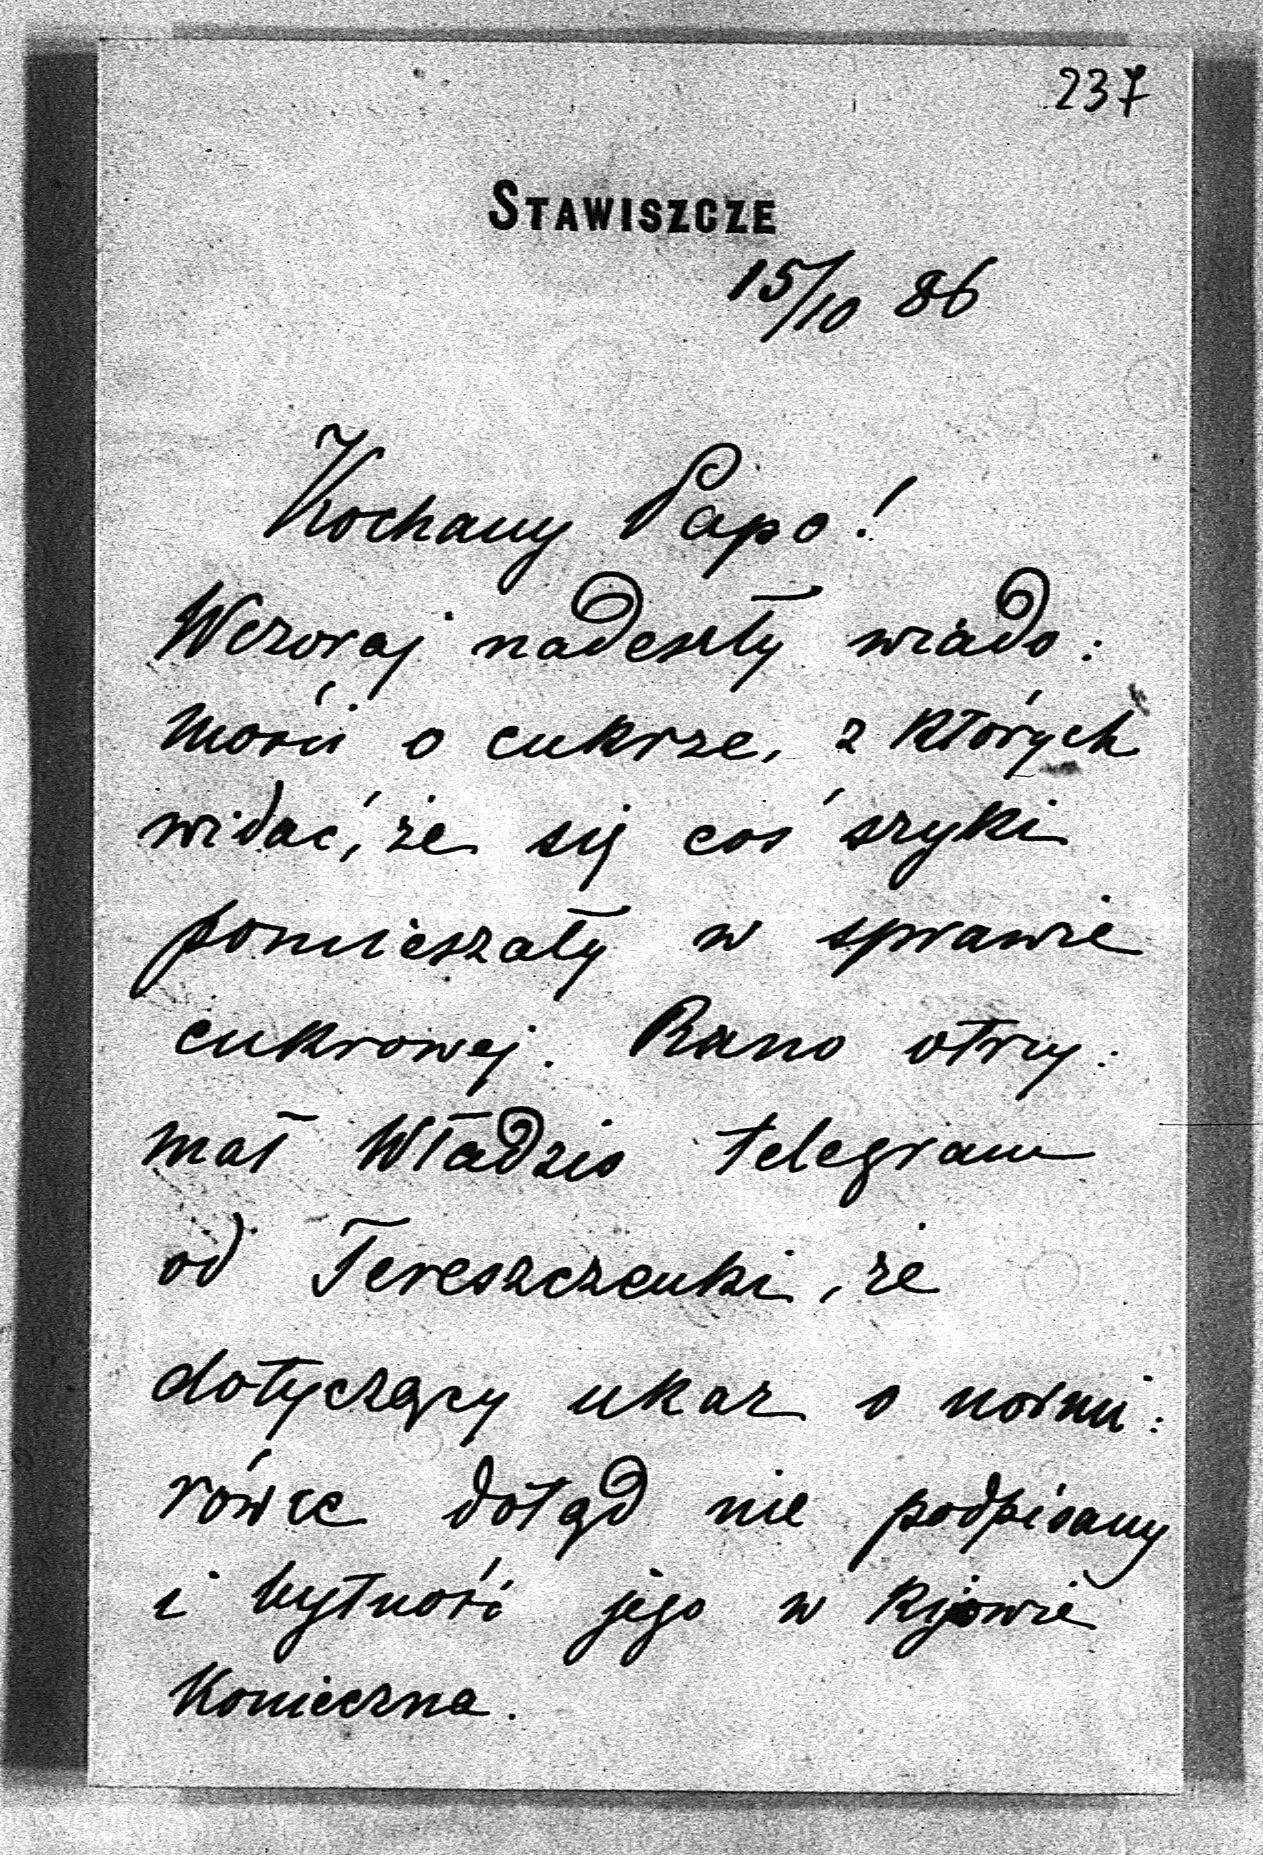 237
STAWISZCZE
15/10 86
Kochany Papo!
Wczoraj nadeszły wiado:
mości o cukrze, z których
widać, że się coś szyki
pomieszały w sprawie
cukrowej. Rano otrzy:
mał Władzio telegram
od Tereszczenki, że
dotyczący ukaz o normi:
rówce dotąd nie podpisany
i bytność jego w Kijowie
konieczna.